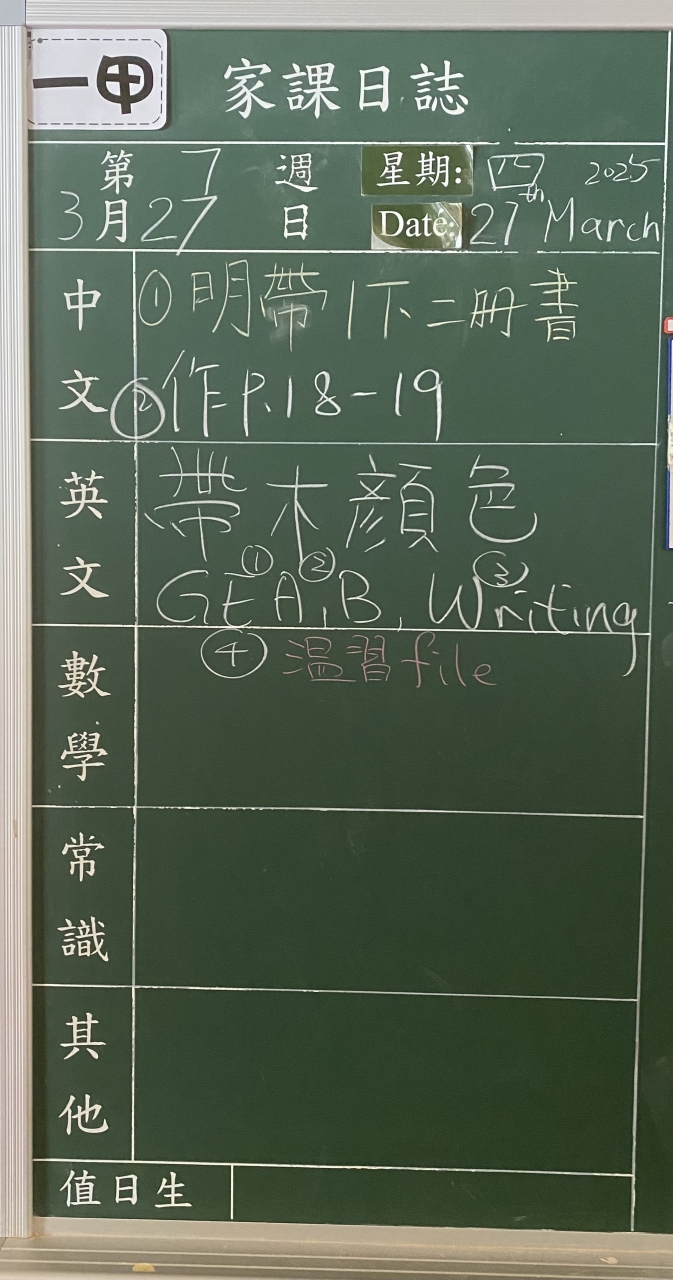 一甲
家課日誌
第 7 週 星期: 四 2025
3月27日 Date: 27th March
中文 ①明帶1下二冊書
②作P.18-19
英文 帶木顏色
① ② ③
GE A, B, Writing
④ 溫習file
數學
常識
其他
值日生